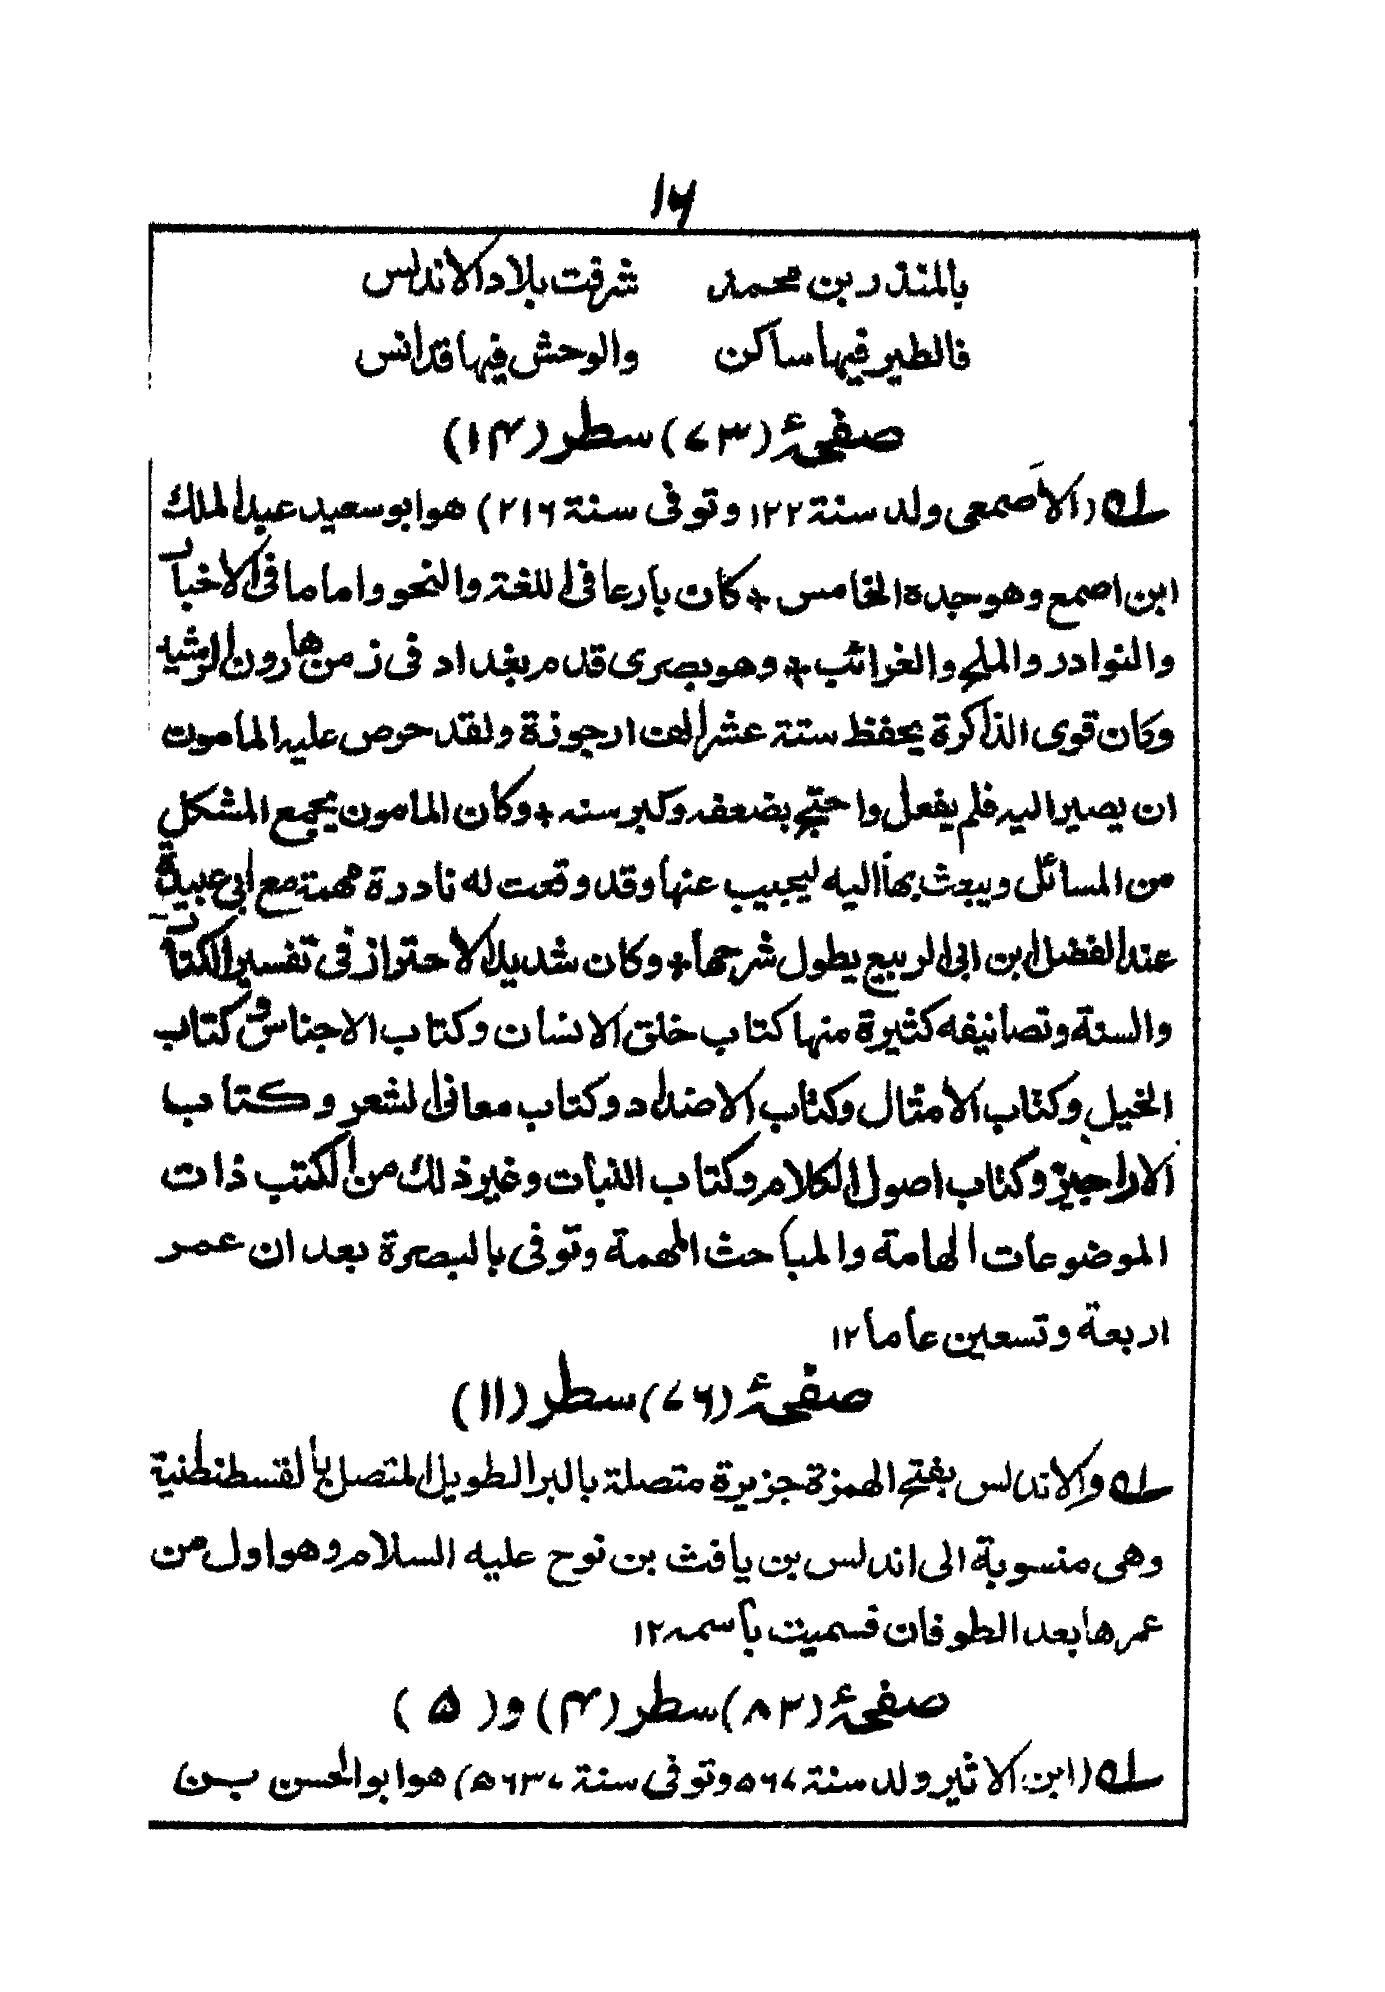 ۱۶
بالمنذر بن محمد شرفت بلاد الاندلس
فالطير فيها ساكن والوحش فيها قد انس
صفحۂ (۷۳) سطر (۱۴)
لـه (الاصمعى ولد سنة ۱۲۲ وتوفى سنة ۲۱۶) هو ابو سعيد عبد الملك
ابن اصمع وهو جده الخامس + كان بارعا فى اللغة والنحو واماما فى الاخبار
والنوادر والملح والغرائب + وهو بصرى قدم بغداد فى زمن هارون الرشيد
وكان قوى الذاكرة يحفظ ستة عشر الف ارجوزة ولقد حرص عليه المامون
ان يصير اليه فلم يفعل واحتج بضعفه وكبر سنه + وكان المامون يجمع المشكل
من المسائل ويبعث بها اليه ليجيب عنها وقد وقعت له نادرة مهمة مع ابى عبيدة
عند الفضل ابن ابى الربيع يطول شرحها + وكان شديد الاحتراز فى تفسير الكتاب
والسنة وتصانيفه كثيرة منها كتاب خلق الانسان وكتاب الاجناس وكتاب
الخيل وكتاب الامثال وكتاب الاضداد وكتاب معانى الشعر وكتاب
الاراجيز وكتاب اصول الكلام وكتاب النبات وغير ذلك من الكتب ذات
الموضوعات الهامة والمباحث المهمة وتوفى بالبصرة بعد ان عمر
اربعة وتسعين عاما ۱۲
صفحۂ (۷۶) سطر (۱۱)
لـه والاندلس بفتح الهمزة جزيرة متصلة بالبر الطويل المتصل بالقسطنطنية
وهى منسوبة الى اندلس بن يافث بن نوح عليه السلام وهو اول من
عمرها بعد الطوفان فسميت باسمه ۱۲
صفحۂ (۸۲) سطر (۴) و (۵)
لـه (ابن الاثير ولد سنة ۵۶۷ وتوفى سنة ۵۶۳۷) هو ابو الحسن بن